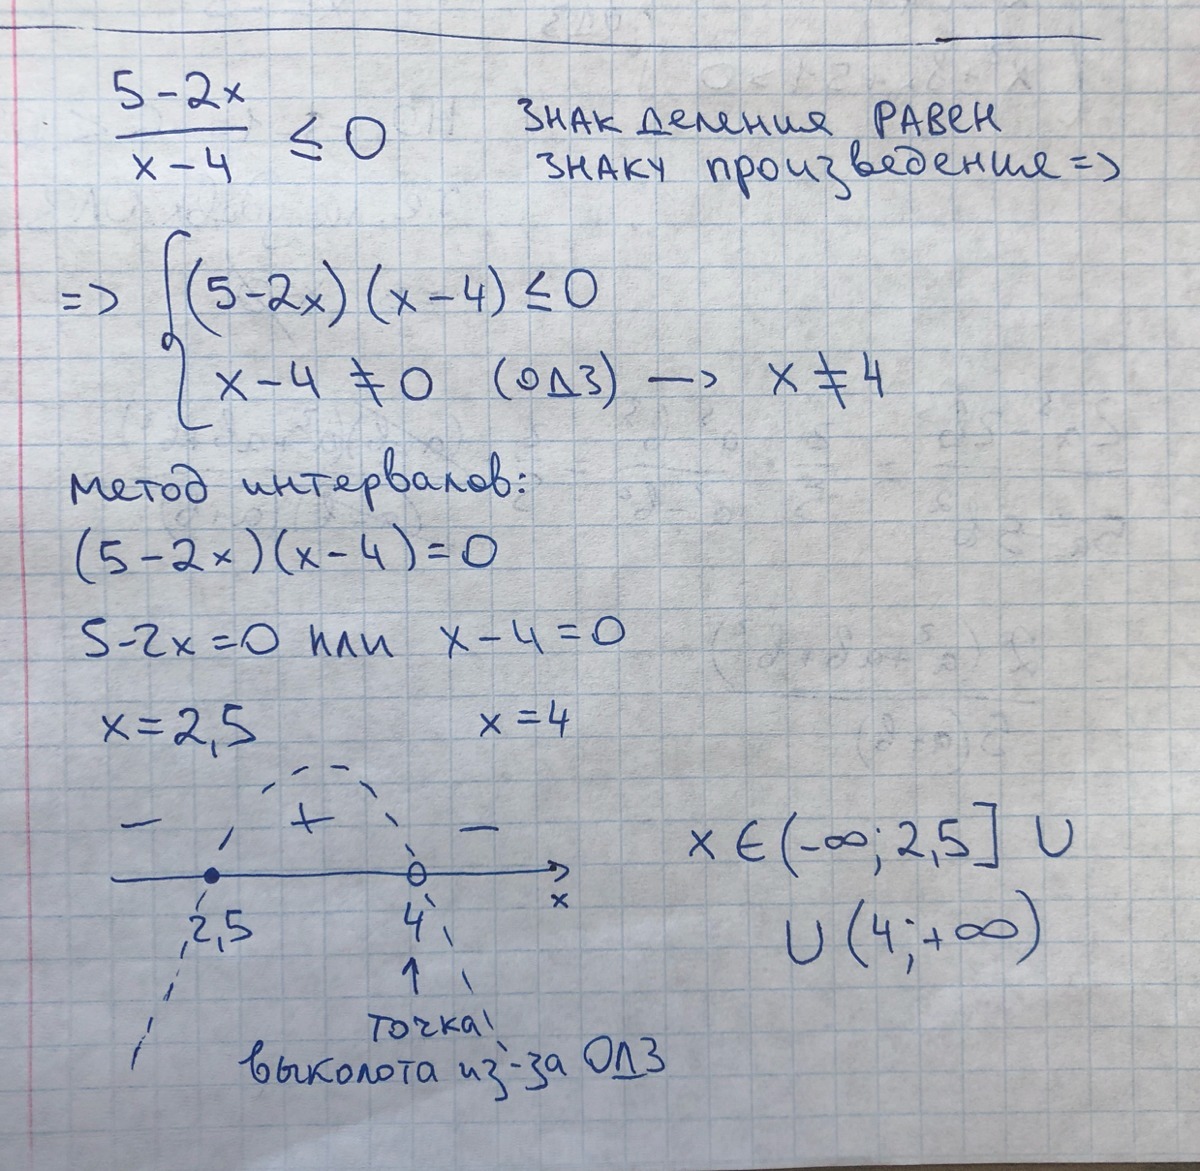 5-2x
x-4
≤ 0
знак деления равен
знаку произведение =>
=> { (5-2x) (x-4) ≤ 0
x-4 ≠ 0 (ОДЗ) —> x ≠ 4
метод интервалов:
(5-2x)(x-4)=0
5-2x=0 или x-4=0
x=2,5 x=4
- + -
2,5 4 x
x ∈ (-∞; 2,5] ∪
∪ (4; +∞)
↑
точка
выколота из-за ОДЗ